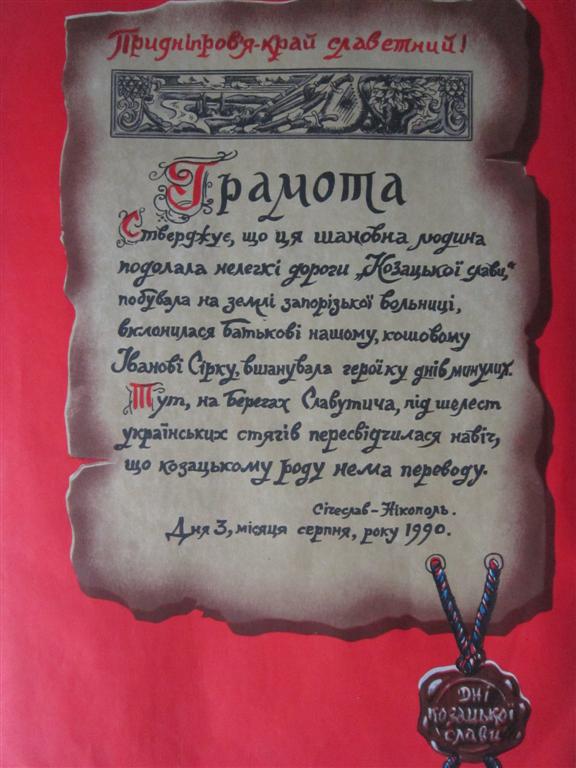 Придніпров'я-край славетний!
Грамота
Стверджує, що ця шановна людина
подолала нелегкі дороги „Козацької слави,"
побувала на землі запорізької вольниці,
вклонилася батькові нашому, кошовому
Іванові Сірку, вшанувала героїку днів минулих.
Тут, на берегах Славутича, під шелест
українських стягів пересвідчилася навіч,
що козацькому роду нема переводу.
Січеслав-Нікополь.
Дня 3, місяця серпня, року 1990.
Дні
козацької
слави